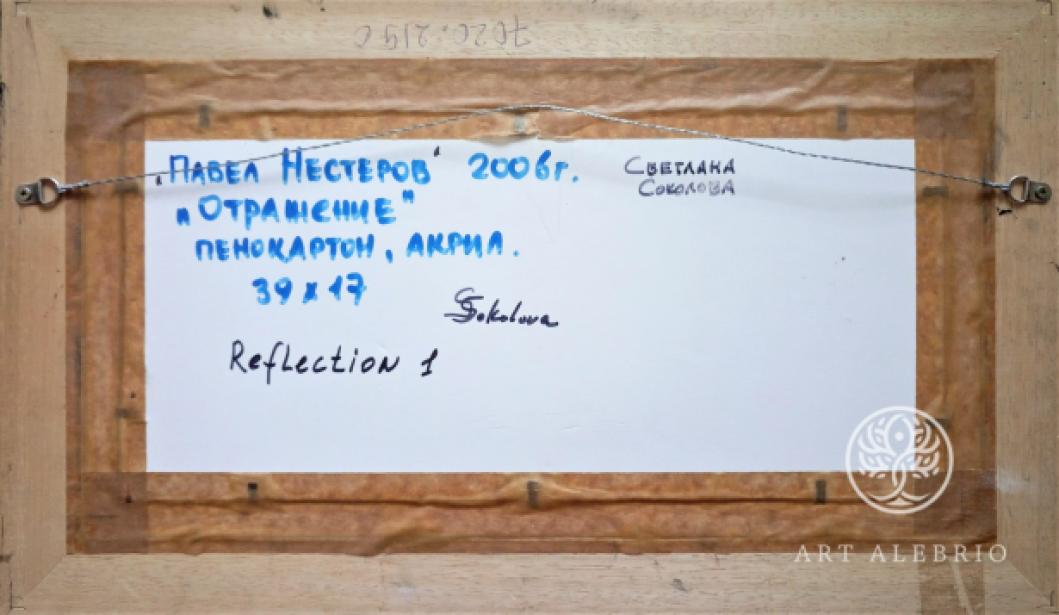 7020.2190
„Павел Нестеров" 2006г.
„Отражение"
пенокартон, акрил.
39 x 17
Светлана
Соколова
SSokolova
Reflection 1
ART ALEBRIO